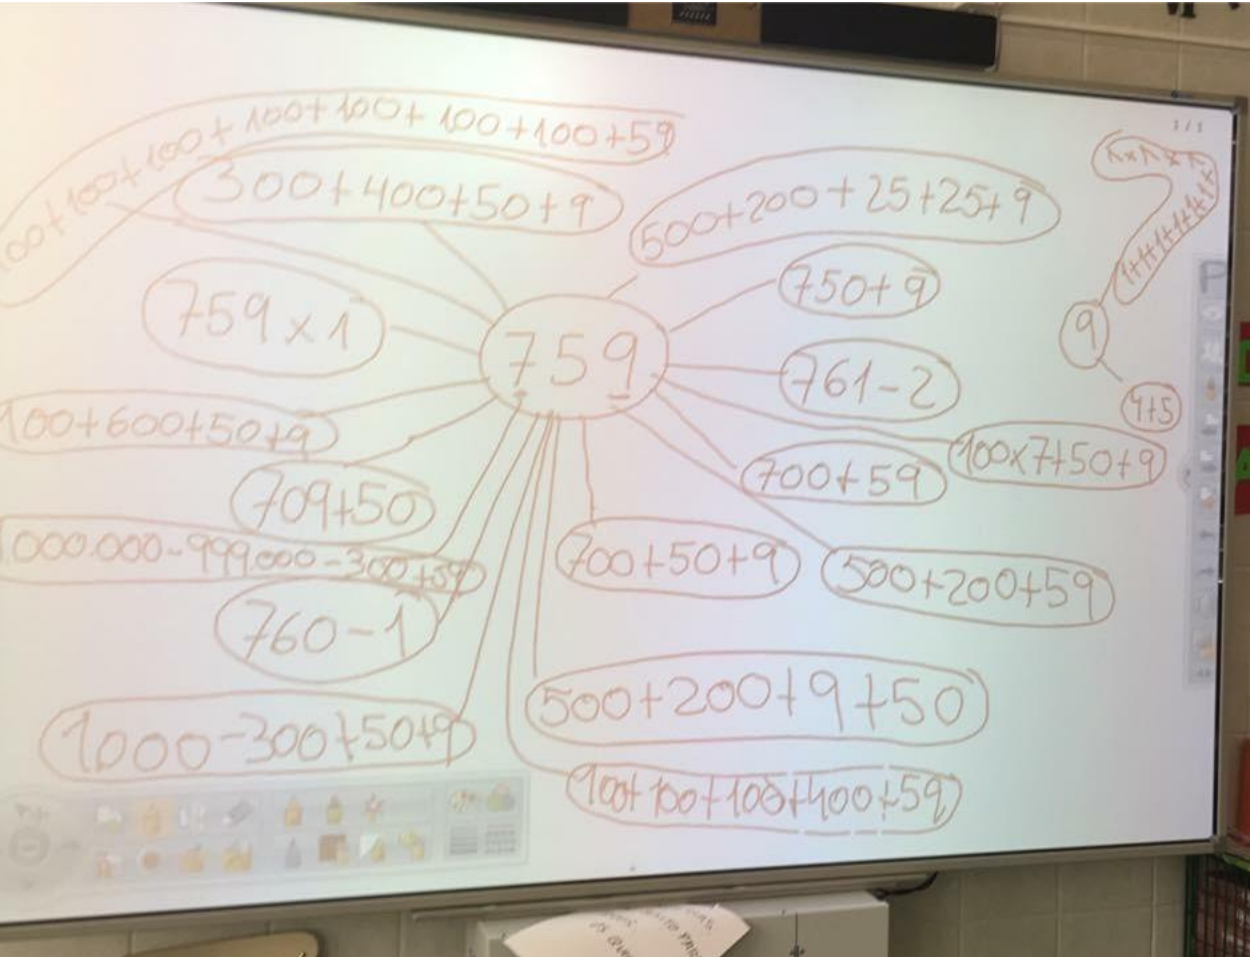 100+100+100+100+100+100+100+59
300+400+50+9
500+200+25+25+9
1/1
759x1
759
750+9
9
761-2
4+5
100+600+50+9
100x7+50+9
709+50
700+59
1.000.000-999.000-300+59
700+50+9
500+200+59
760-1
500+200+9+50
1.000-300+50+9
100+100+100+400+59